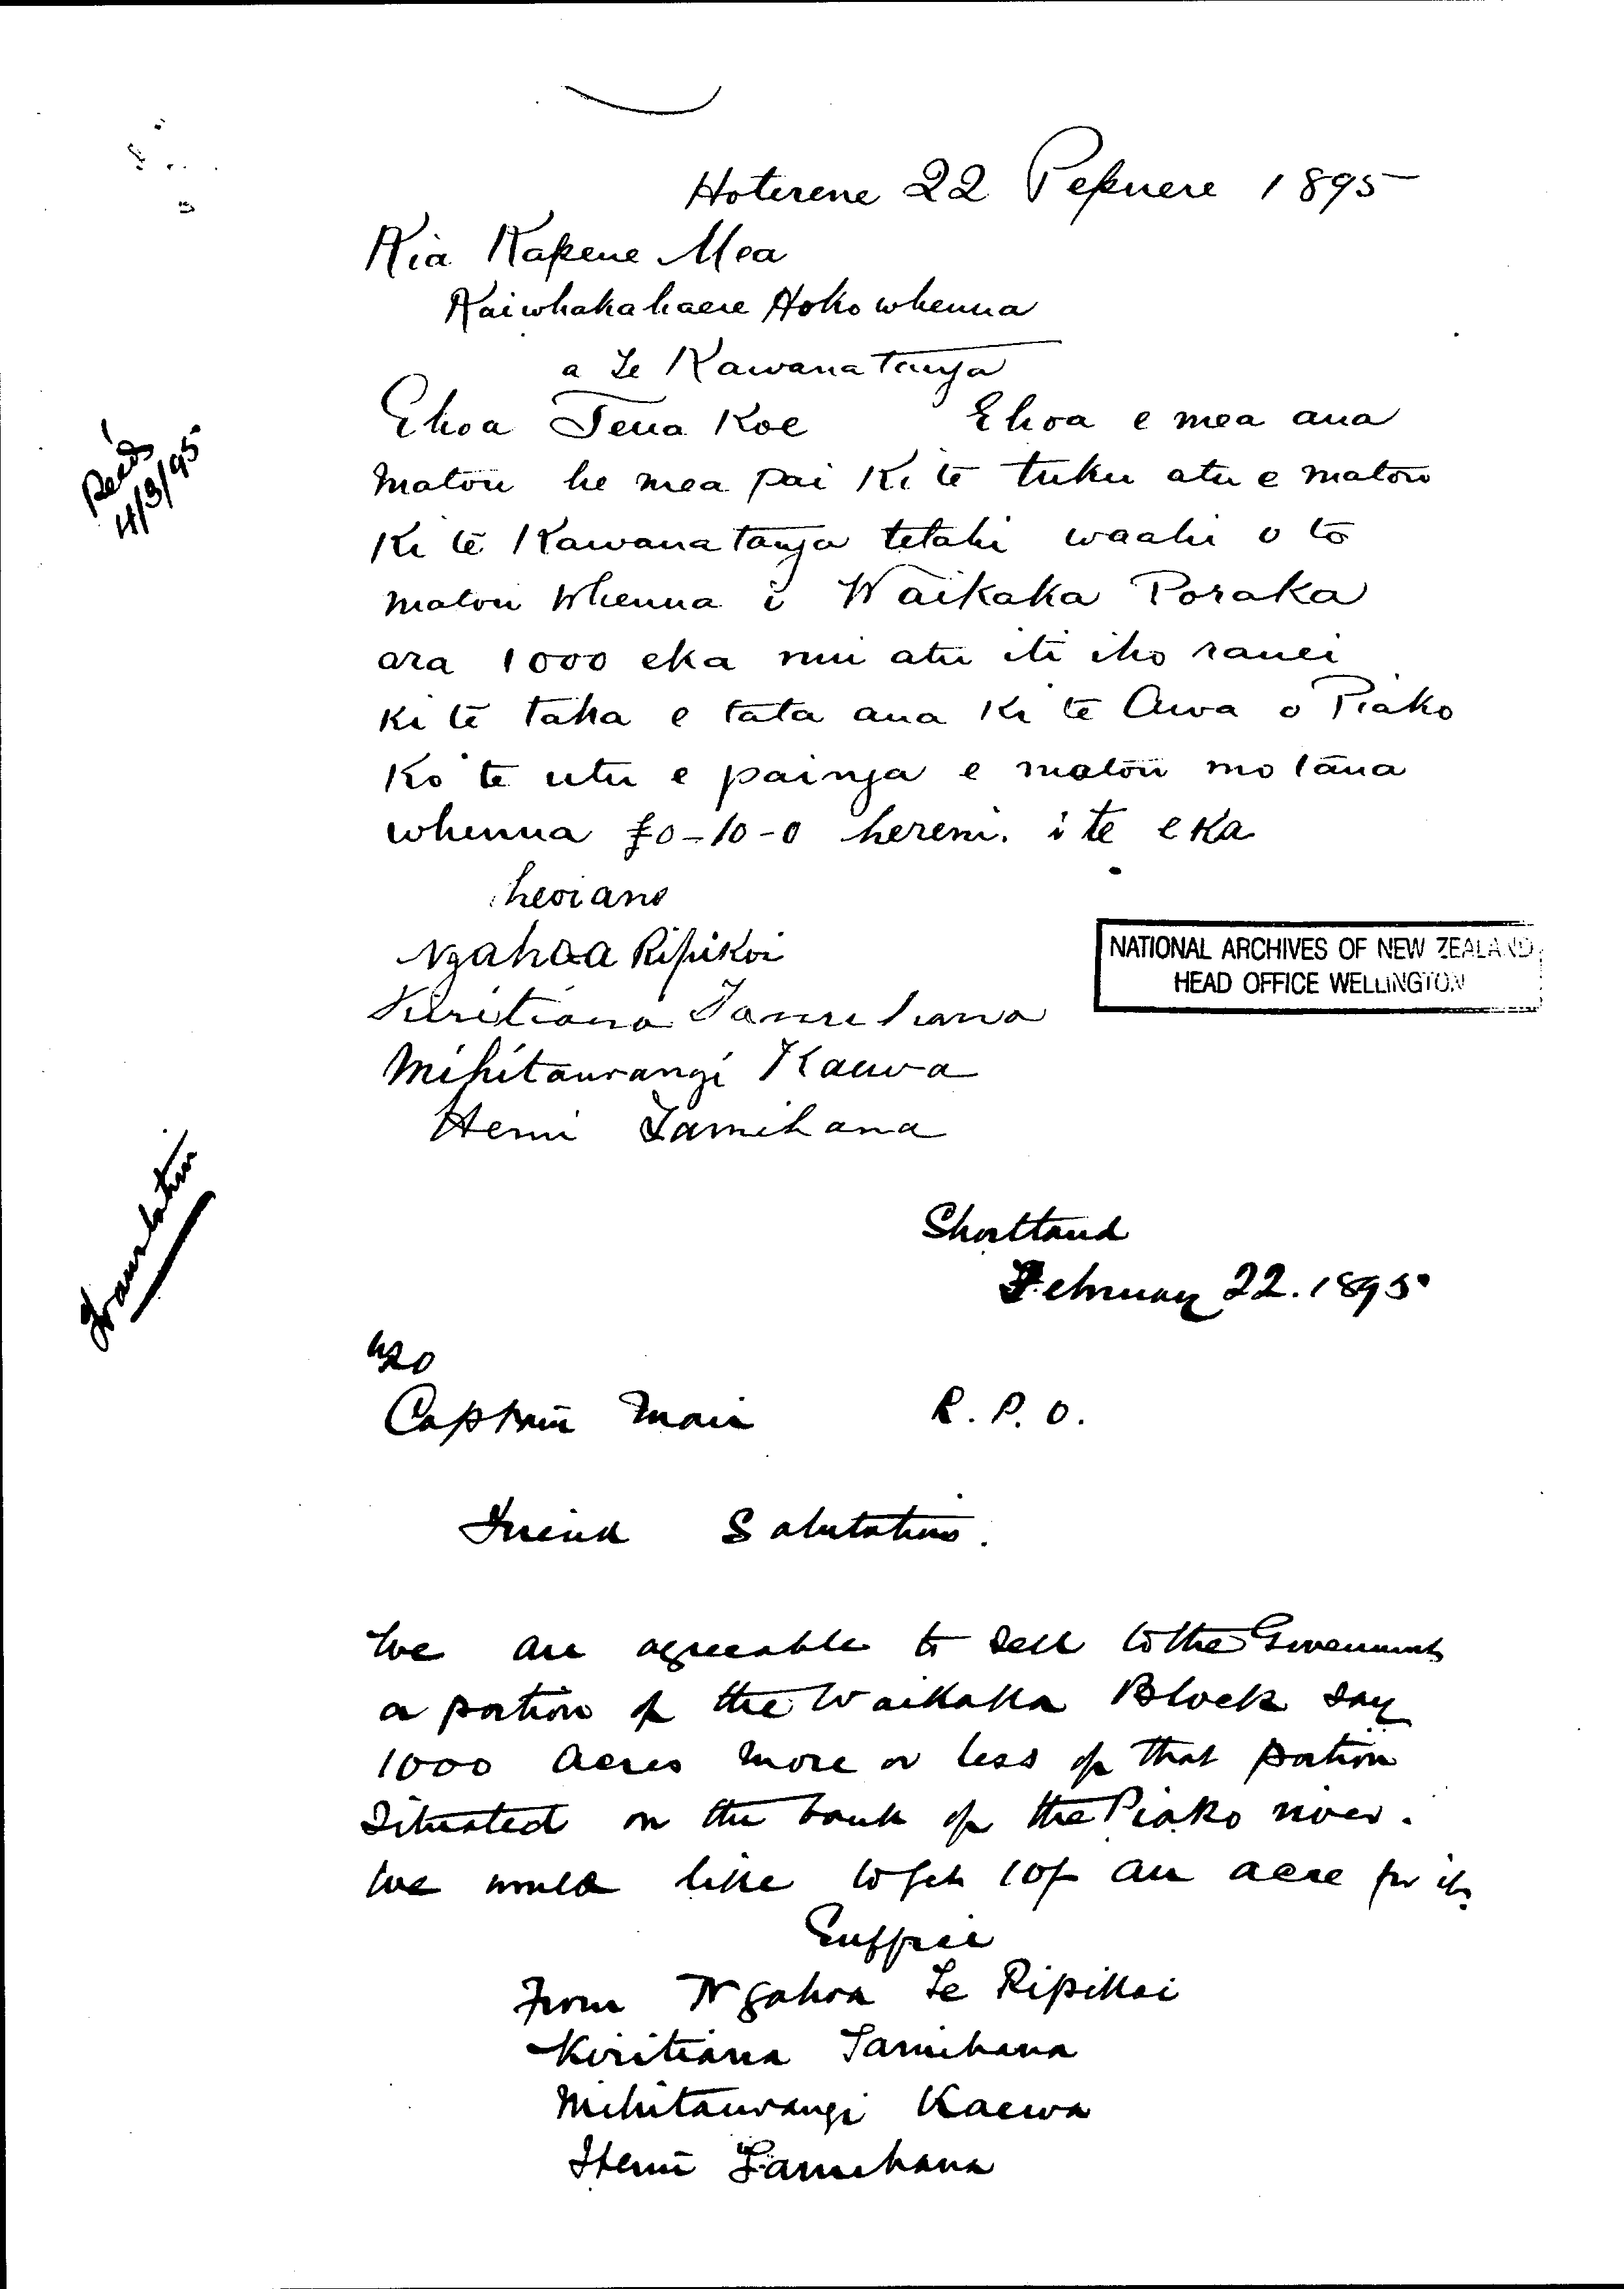 Hoterene 22 Pepuere 1895
Kia Kapene Mea
Kaiwhakahaere Hoko whenua
a Te Kawanatanga
Ehoa Tena Koe Ehoa e mea ana
matou he mea pai Ki te tuku atu e matou
Ki te Kawanatanga tetahi waahi o to
matou Whenua i Waikaka Poraka
ara 1000 eka nui atu iti iho ranei
Ki te taha e tata ana Ki te Awa o Piako
Ko te utu e painga e matou mo taua
whenua £0-10-0 hereni. i te eka
heoi ano
Ngahoa Ripikoi
Kiritiana Tamihana
Mihitaurangi Kaewa
Hemi Tamihana
NATIONAL ARCHIVES OF NEW ZEALAND
HEAD OFFICE WELLINGTON
Recd
4/3/95
Translation
Shortland
February 22. 1895
To
Captain Mair R. P. O.
Friend Salutations.
We are agreeable to sell to the Government
a portion of the Waikaka Block say
1000 acres more or less of that portion
situated on the bank of the Piako river.
We would like to get 10/- an acre for it.
Suffice
From Ngahoa Te Ripikoi
Kiritiana Tamihana
Mihitaurangi Kaewa
Hemi Tamihana